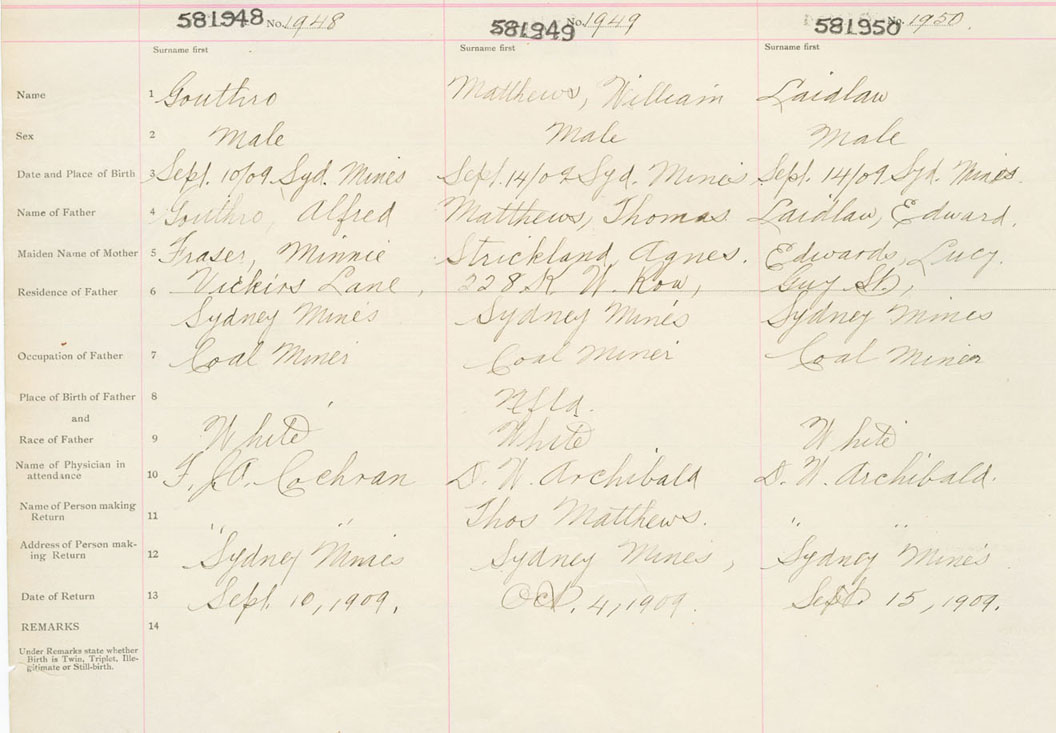 581948 No. 1948 581949 No. 1949 581950 No. 1950.
Surname first Surname first Surname first
Name 1 Gouthro Matthews, William Laidlaw
Sex 2 Male Male Male
Date and Place of Birth 3 Sept. 10/09 Syd. Mines Sept. 14/09 Syd. Mines Sept. 14/09 Syd. Mines.
Name of Father 4 Gouthro, Alfred Matthews, Thomas Laidlaw, Edward.
Maiden Name of Mother 5 Fraser, Minnie Strickland, Agnes. Edwards, Lucy.
Residence of Father 6 Vickers Lane, 228 K W. Row, Guy St.,
Sydney Mines Sydney Mines Sydney Mines
Occupation of Father 7 Coal Miner Coal Miner Coal Miner
Place of Birth of Father 8 Nfld.
and
Race of Father 9 White White White
Name of Physician in
attendance 10 Cochran D. W. Archibald D. W. Archibald.
Name of Person making
Return 11 " " Thos Matthews. " "
Address of Person mak-
ing Return 12 Sydney Mines Sydney Mines, Sydney Mines
Date of Return 13 Sept. 10, 1909. Oct. 4, 1909. Sept. 15, 1909.
REMARKS 14
Under Remarks state whether
Birth is Twin, Triplet, Ille-
gitimate or Still-birth.